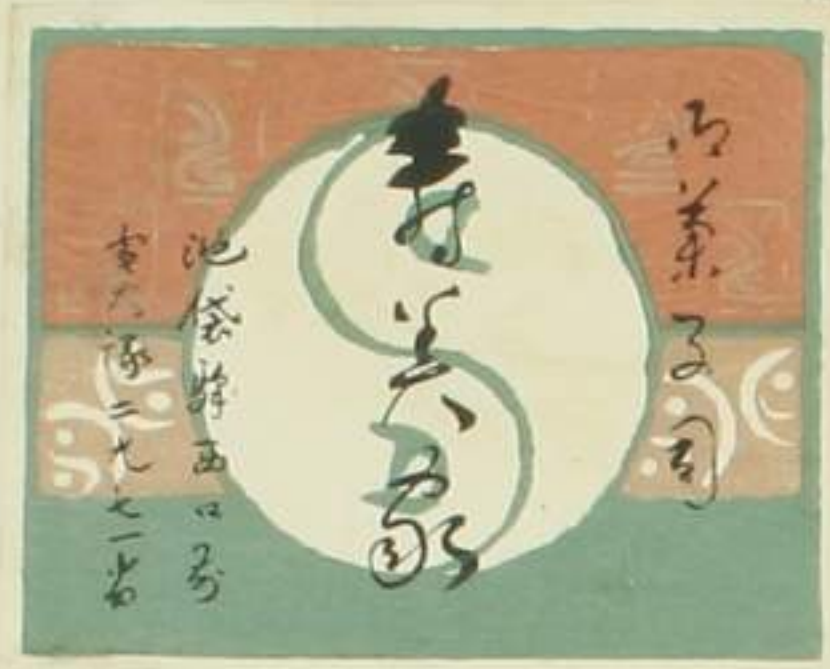 御菓子司
寿美家
池袋驛西口前
電大塚二九七一番